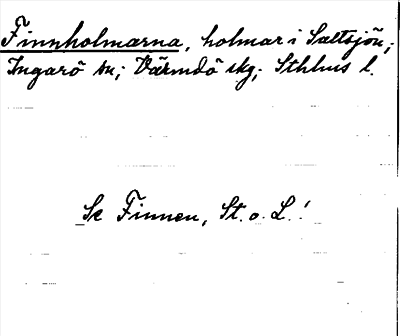 Finnholmarna, holmar i Saltsjön;
Ingarö sn; Värmdö skg; Sthlms l.
Se Finnen, St. o. L.!